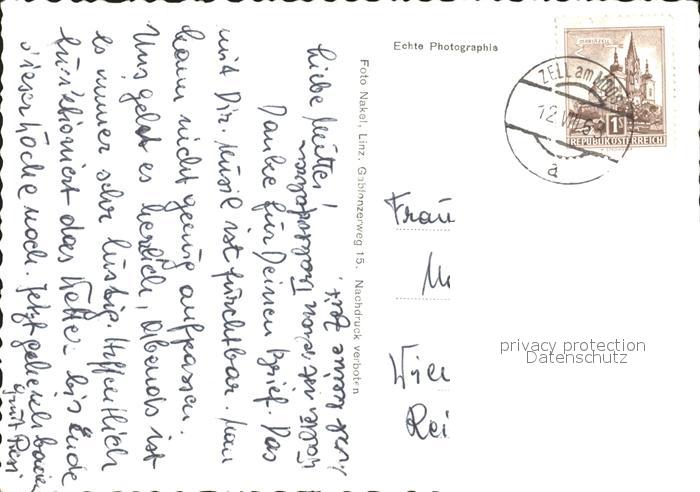 Liebe Mutter!
Danke für Deinen Brief. Das
mit Dir. Musil ist furchtbar. Man
kann nicht genug aufpassen.
Uns geht es herrlich, Abends ist
es immer sehr lustig. Hoffentlich
funktioniert das Wetter bis Ende
dieser Woche noch. Jetzt gehe ich baden
Gruß Resi
keine Zeit!
Foto Nakel, Linz, Gablonzerweg 15. Nachdruck verboten
Echte Photographie
MARIAZELL
1S
REPUBLIK ÖSTERREICH
ZELL am MOOS
12.VIII.59
a
Frau
Wien
Rei
privacy protection
Datenschutz